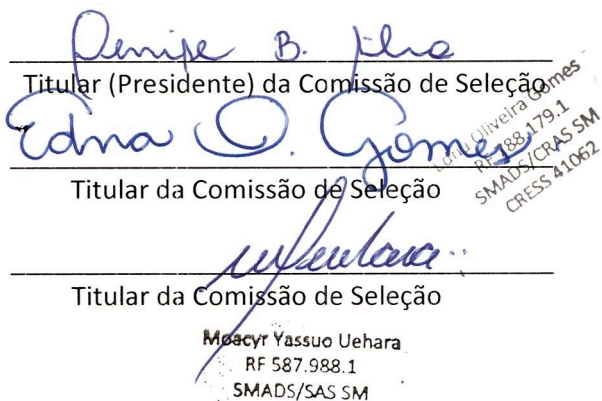 B.
Titular (Presidente) da Comissão de Seleção
Edna O. Gomes
Oliveira Gomes
RF 188.179.1
SMADS/CRAS SM
CRESS 41062
Titular da Comissão de Seleção
Titular da Comissão de Seleção
Moacyr Yassuo Uehara
RF 587.988.1
SMADS/SAS SM